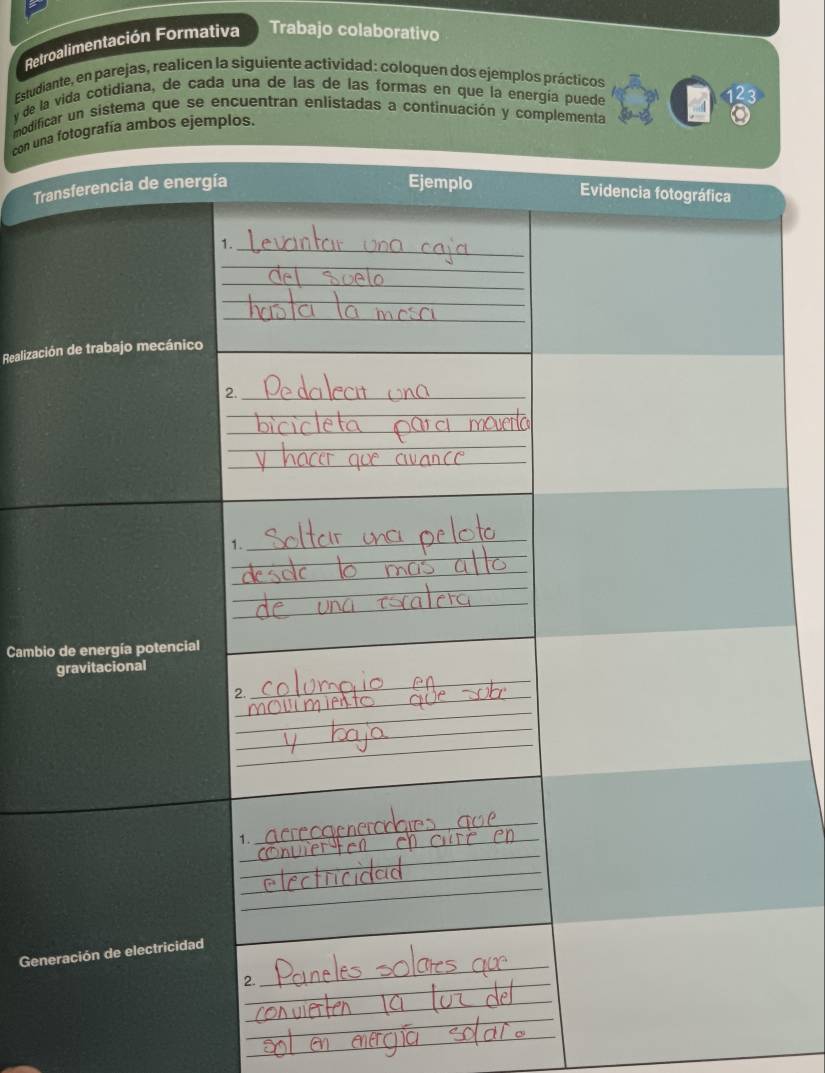 Retroalimentación Formativa
Trabajo colaborativo
Estudiante, en parejas, realicen la siguiente actividad: coloquen dos ejemplos prácticos
y de la vida cotidiana, de cada una de las de las formas en que la energía puede
modificar un sistema que se encuentran enlistadas a continuación y complementa
con una fotografía ambos ejemplos.
123
Transferencia de energía
Ejemplo
Evidencia fotográfica
Realización de trabajo mecánico
1. Levantar una caja
del suelo
hasta la mesa
2. Pedalear una
bicicleta para moverla
y hacer que avance
Cambio de energía potencial
gravitacional
1. Soltar una pelota
desde lo mas alto
de una escalera
2. columpio en
movimiento que sube
y baja
Generación de electricidad
1. aereogeneradores que
convierten en aire en
electricidad
2. Paneles solares que
convierten la luz del
sol en energía solar.